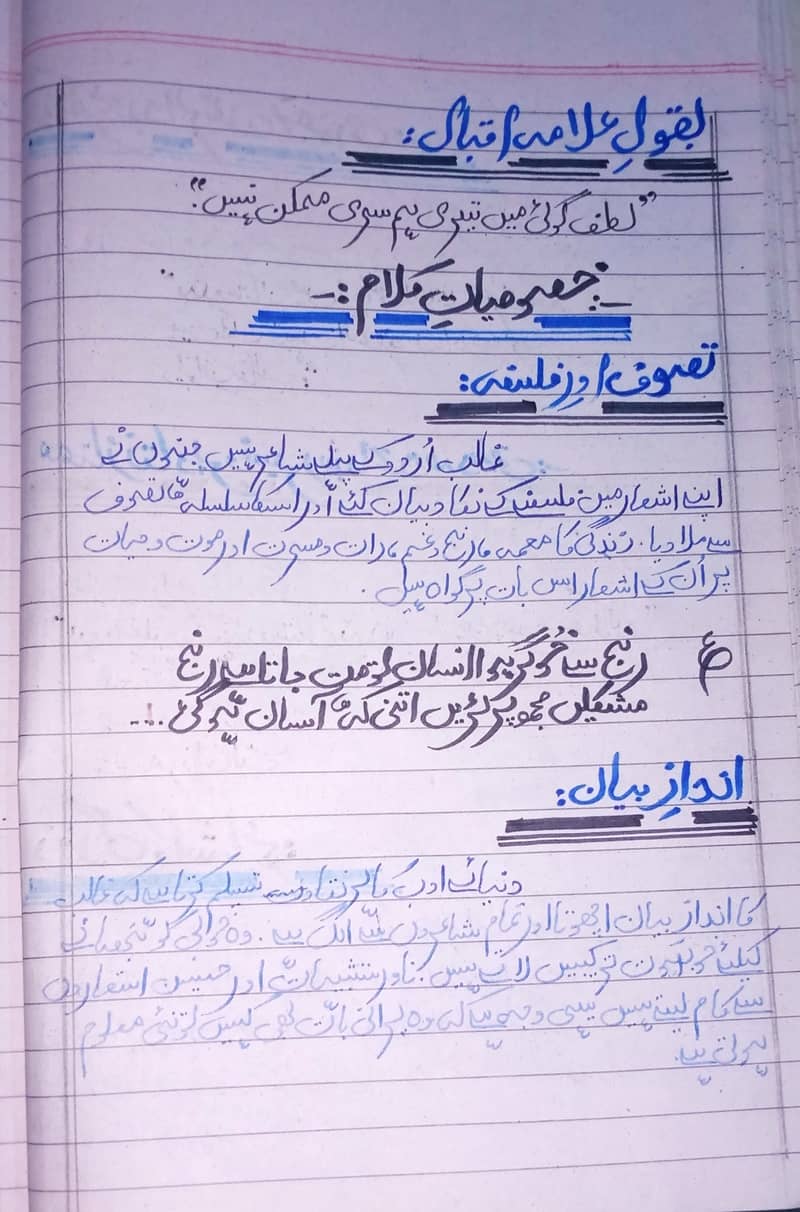 بقولِ علامہ اقبال:
"لطف گوئی میں تیری ہم سری ممکن نہیں"
خصوصیاتِ کلام:-
تصوف اور فلسفہ:
غالب اُردو کے پہلے شاعر ہیں جنہوں نے
اپنے اشعار میں فلسفہ کے بیان کئے اور اسکا سلسلہ تصوف
سے ملا دیا۔ زندگی کا معمہ رنج و غم و مسرت اور موت و حیات
پر اُن کے اشعار اس بات پر گواہ ہیں۔
ع رنج سے خُوگر ہوا انسان تو مٹ جاتا ہے رنج
مشکلیں مجھ پر پڑیں اتنی کہ آسان ہوگئ....
اندازِ بیان:
دنیائے ادب کا ہر نقاد تسلیم کرتا ہے کہ غالب
کا اندازِ بیان اچھوتا اور تمام شاعروں سے الگ ہے۔ وہ کو نبھانے
کیلئے خوبصورت ترکیبیں لاتے ہیں۔ نادر تشبیہات اور حسین استعاروں
سے کام لیتے ہیں یہی وجہ ہے کہ وہ پرانی بات بھی کہیں تو نئی معلوم
ہوتی ہے۔